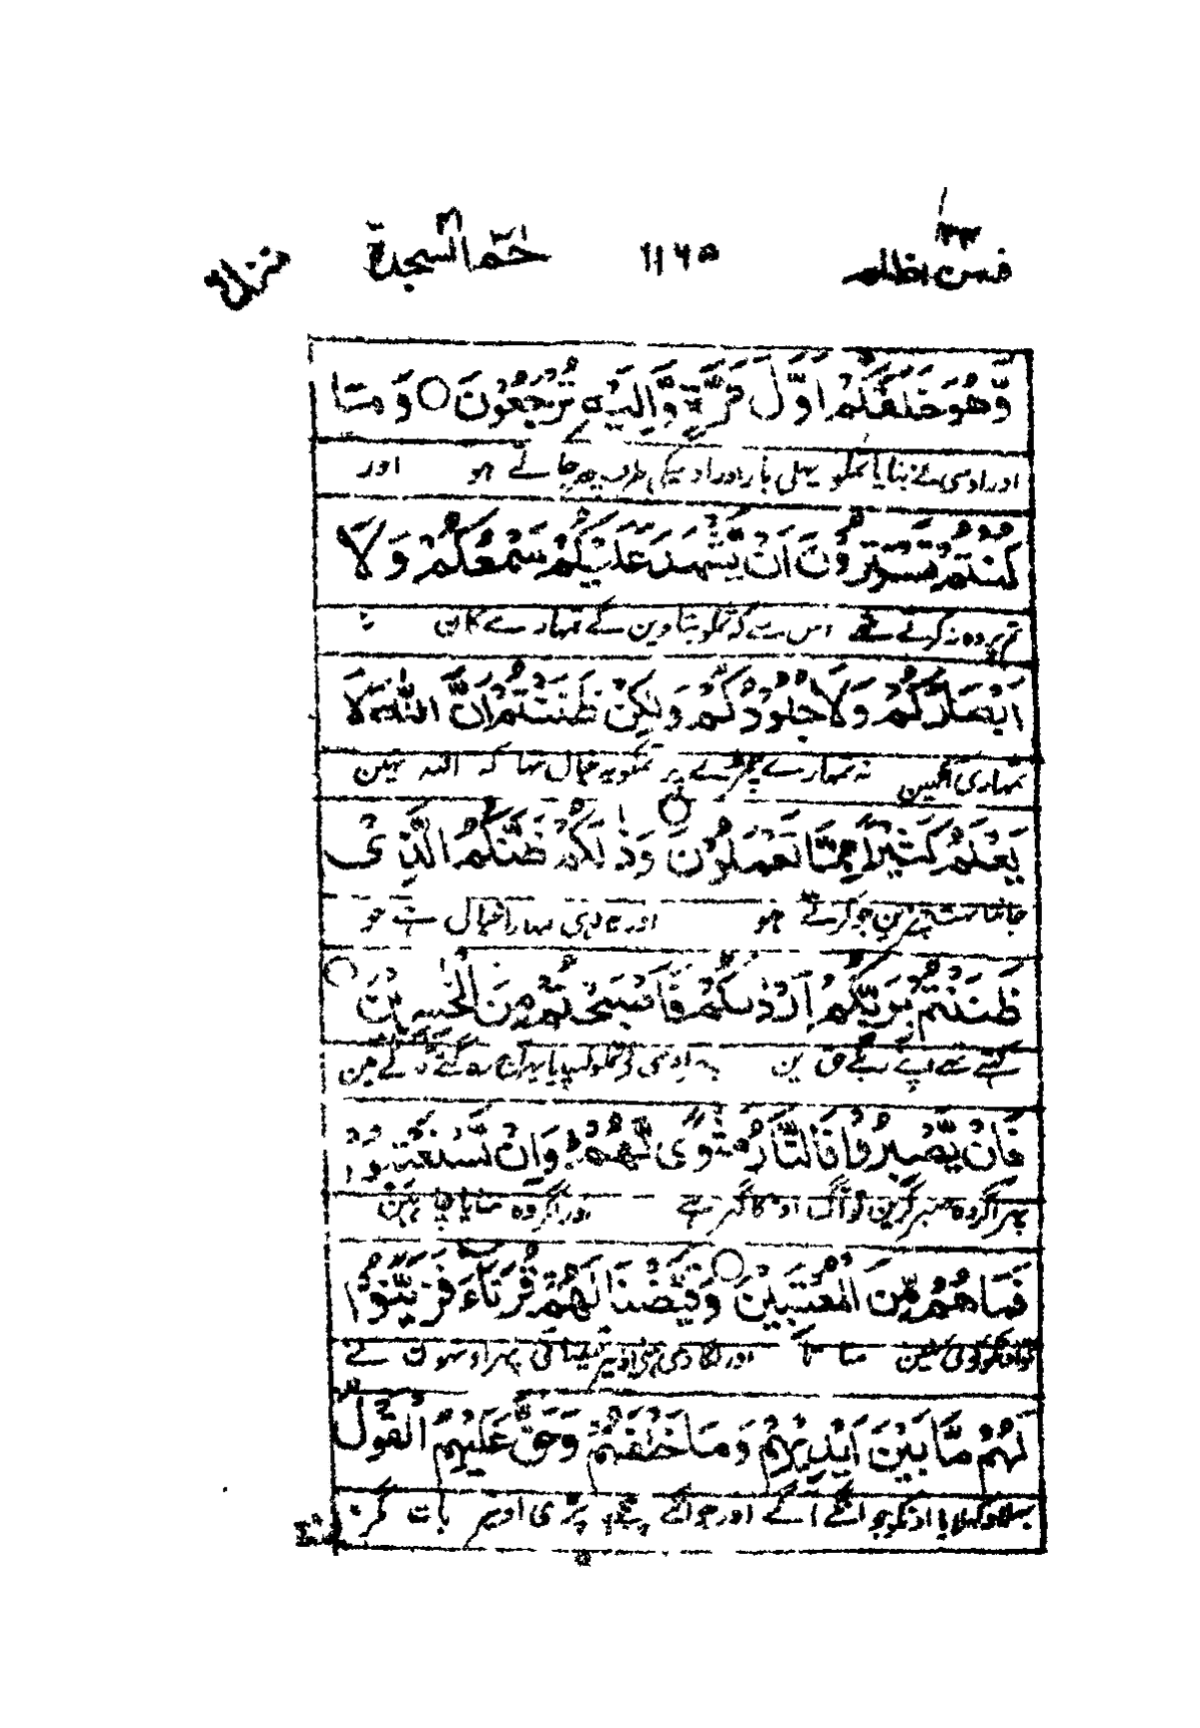 فمن اظلم ٢٤ ١١٦٥ حٰمٓ السجدة ٤١ منزل
وَّهُوَ خَلَقَكُمْ اَوَّلَ مَرَّةٍ وَّاِلَيْهِ تُرْجَعُوْنَ ○ وَمَا
اور اوسی نے بنایا تمکو پہلی بار اور اوسیکی طرف پھر جاتے ہو اور
كُنْتُمْ تَسْتَتِرُوْنَ اَنْ يَّشْهَدَ عَلَيْكُمْ سَمْعُكُمْ وَلَا
تم پردہ نہ کرتے تھے اس سے کہ تمکو بتا دین گے تمہارے کان نہ
اَبْصَارُكُمْ وَلَا جُلُوْدُكُمْ وَلٰكِنْ ظَنَنْتُمْ اَنَّ اللّٰهَ لَا
تمہاری آنکھین نہ تمہارے چمڑے پر تمکو یہ خیال تھا کہ اللہ نہین
يَعْلَمُ كَثِيْرًا مِّمَّا تَعْمَلُوْنَ ○ وَذٰلِكُمْ ظَنُّكُمُ الَّذِيْ
جانتا بہت چیزین جو کرتے ہو اور یہ وہی تمہارا خیال ہے جو
ظَنَنْتُمْ بِرَبِّكُمْ اَرْدٰىكُمْ فَاَصْبَحْتُمْ مِّنَ الْخٰسِرِيْنَ ○
رکھتے تھے اپنے رب کے حق مین اوسی نے تمکو کھپایا پھر آج رہ گئے ٹوٹے مین
فَاِنْ يَّصْبِرُوْا فَالنَّارُ مَثْوًى لَّهُمْ وَاِنْ يَّسْتَعْتِبُوْا
پھر اگر وہ صبر کرین تو آگ اونکا گھر ہے اور اگر وہ منایا چاہین
فَمَا هُمْ مِّنَ الْمُعْتَبِيْنَ ○ وَقَيَّضْنَا لَهُمْ قُرَنَآءَ فَزَيَّنُوْا
تو اونکو کوئی نہین مناتا اور لگا دی ہمنے اونپر تعیناتی پھر اونہون نے
لَهُمْ مَّا بَيْنَ اَيْدِيْهِمْ وَمَا خَلْفَهُمْ وَحَقَّ عَلَيْهِمُ الْقَوْلُ
بھلا دکھلایا اونکو جو اونکے آگے اور جو اونکے پیچھے پڑی اونپر بات